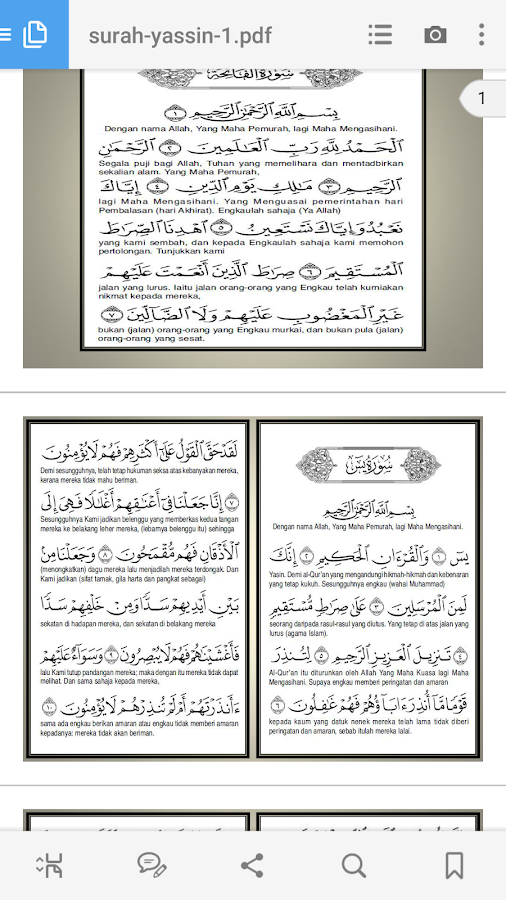 surah-yassin-1.pdf
1
سورة الفاتحة
بِسْمِ اللَّهِ الرَّحْمَٰنِ الرَّحِيمِ ١
Dengan nama Allah, Yang Maha Pemurah, lagi Maha Mengasihani.
الْحَمْدُ لِلَّهِ رَبِّ الْعَالَمِينَ ٢ الرَّحْمَٰنِ
Segala puji bagi Allah, Tuhan yang memelihara dan mentadbirkan
sekalian alam. Yang Maha Pemurah,
الرَّحِيمِ ٣ مَالِكِ يَوْمِ الدِّينِ ٤ إِيَّاكَ
lagi Maha Mengasihani. Yang Menguasai pemerintahan hari
Pembalasan (hari Akhirat). Engkaulah sahaja (Ya Allah)
نَعْبُدُ وَإِيَّاكَ نَسْتَعِينُ ٥ اهْدِنَا الصِّرَاطَ
yang kami sembah, dan kepada Engkaulah sahaja kami memohon
pertolongan. Tunjukkan kami
الْمُسْتَقِيمَ ٦ صِرَاطَ الَّذِينَ أَنْعَمْتَ عَلَيْهِمْ
jalan yang lurus. Iaitu jalan orang-orang yang Engkau telah kurniakan
nikmat kepada mereka,
غَيْرِ الْمَغْضُوبِ عَلَيْهِمْ وَلَا الضَّالِّينَ ٧
bukan (jalan) orang-orang yang Engkau murkai, dan bukan pula (jalan)
orang-orang yang sesat.
سورة يس
بِسْمِ اللَّهِ الرَّحْمَٰنِ الرَّحِيمِ
Dengan nama Allah, Yang Maha Pemurah, lagi Maha Mengasihani.
يسٓ ١ وَالْقُرْءَانِ الْحَكِيمِ ٢ إِنَّكَ
Yasin. Demi al-Qur'an yang mengandungi hikmah-hikmah dan kebenaran
yang tetap kukuh. Sesungguhnya engkau (wahai Muhammad)
لَمِنَ الْمُرْسَلِينَ ٣ عَلَىٰ صِرَاطٍ مُّسْتَقِيمٍ
seorang daripada rasul-rasul yang diutus. Yang tetap di atas jalan yang
lurus (agama Islam).
٤ تَنزِيلَ الْعَزِيزِ الرَّحِيمِ ٥ لِتُنذِرَ
Al-Qur'an itu diturunkan oleh Allah Yang Maha Kuasa lagi Maha
Mengasihani. Supaya engkau memberi peringatan dan amaran
قَوْمًا مَّا أُنذِرَ ءَابَاؤُهُمْ فَهُمْ غَافِلُونَ ٦
kepada kaum yang datuk nenek mereka telah lama tidak diberi
peringatan dan amaran, sebab itulah mereka lalai.
لَقَدْ حَقَّ الْقَوْلُ عَلَىٰ أَكْثَرِهِمْ فَهُمْ لَا يُؤْمِنُونَ
Demi sesungguhnya, telah tetap hukuman seksa atas kebanyakan mereka,
kerana mereka tidak mahu beriman.
٧ إِنَّا جَعَلْنَا فِي أَعْنَاقِهِمْ أَغْلَالًا فَهِيَ إِلَى
Sesungguhnya Kami jadikan belenggu yang memberkas kedua tangan
mereka ke belakang leher mereka, (lebarnya belenggu itu) sehingga
الْأَذْقَانِ فَهُم مُّقْمَحُونَ ٨ وَجَعَلْنَا مِن
(menongkatkan) dagu mereka lalu menjadilah mereka terdongak. Dan
Kami jadikan (sifat tamak, gila harta dan pangkat sebagai)
بَيْنِ أَيْدِيهِمْ سَدًّا وَمِنْ خَلْفِهِمْ سَدًّا
sekatan di hadapan mereka, dan sekatan di belakang mereka
فَأَغْشَيْنَاهُمْ فَهُمْ لَا يُبْصِرُونَ ٩ وَسَوَاءٌ عَلَيْهِمْ
lalu Kami tutup pandangan mereka; maka dengan itu mereka tidak dapat
melihat. Dan sama sahaja kepada mereka,
ءَأَنذَرْتَهُمْ أَمْ لَمْ تُنذِرْهُمْ لَا يُؤْمِنُونَ ١٠
sama ada engkau berikan amaran atau engkau tidak memberi amaran
kepadanya: mereka tidak akan beriman.